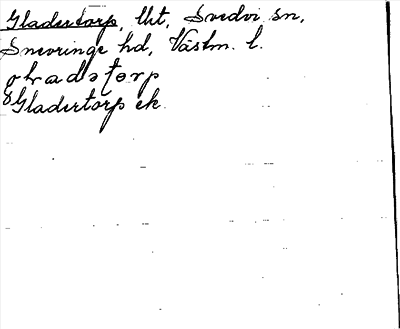 Gladertorp, lht, Svedvi sn,
Snevringe hd, Västm. l.
gladəstorp
Gladertorp ek.